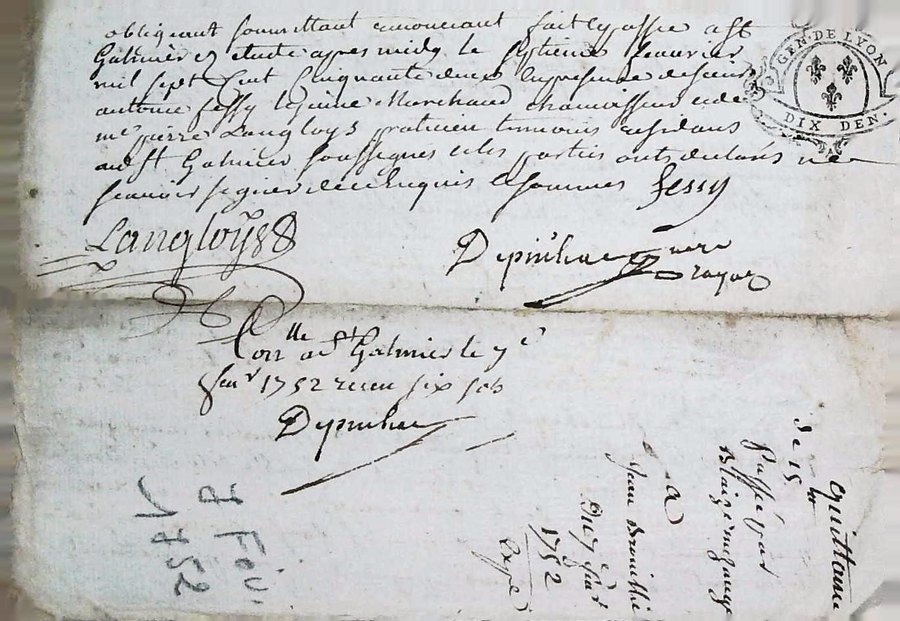 obligeant soumettant renoncant fait et passé a st
Galmier en etude apres midy le septieme feuvrier
mil sept cent cinquante deux en presence de sieur
antoine fessy le jeune Marchand chamoisseur et de
me pierre Langloys praticien temoins residans
aud st Galmier soussignes et les parties ont declarés ne
scavoir signer de ce enquis et sommes fessy
Langloys
Depinhac nore royal
GEN. DE LYON
DIX DEN.
Con lle a st Galmier le 7e
feur 1752 receu six sols
Depinhac
quittance
de 15 lt
Passé par
Blaize
a
Jean
Du 7e feur
1752
Expé
7 Fév.
1752